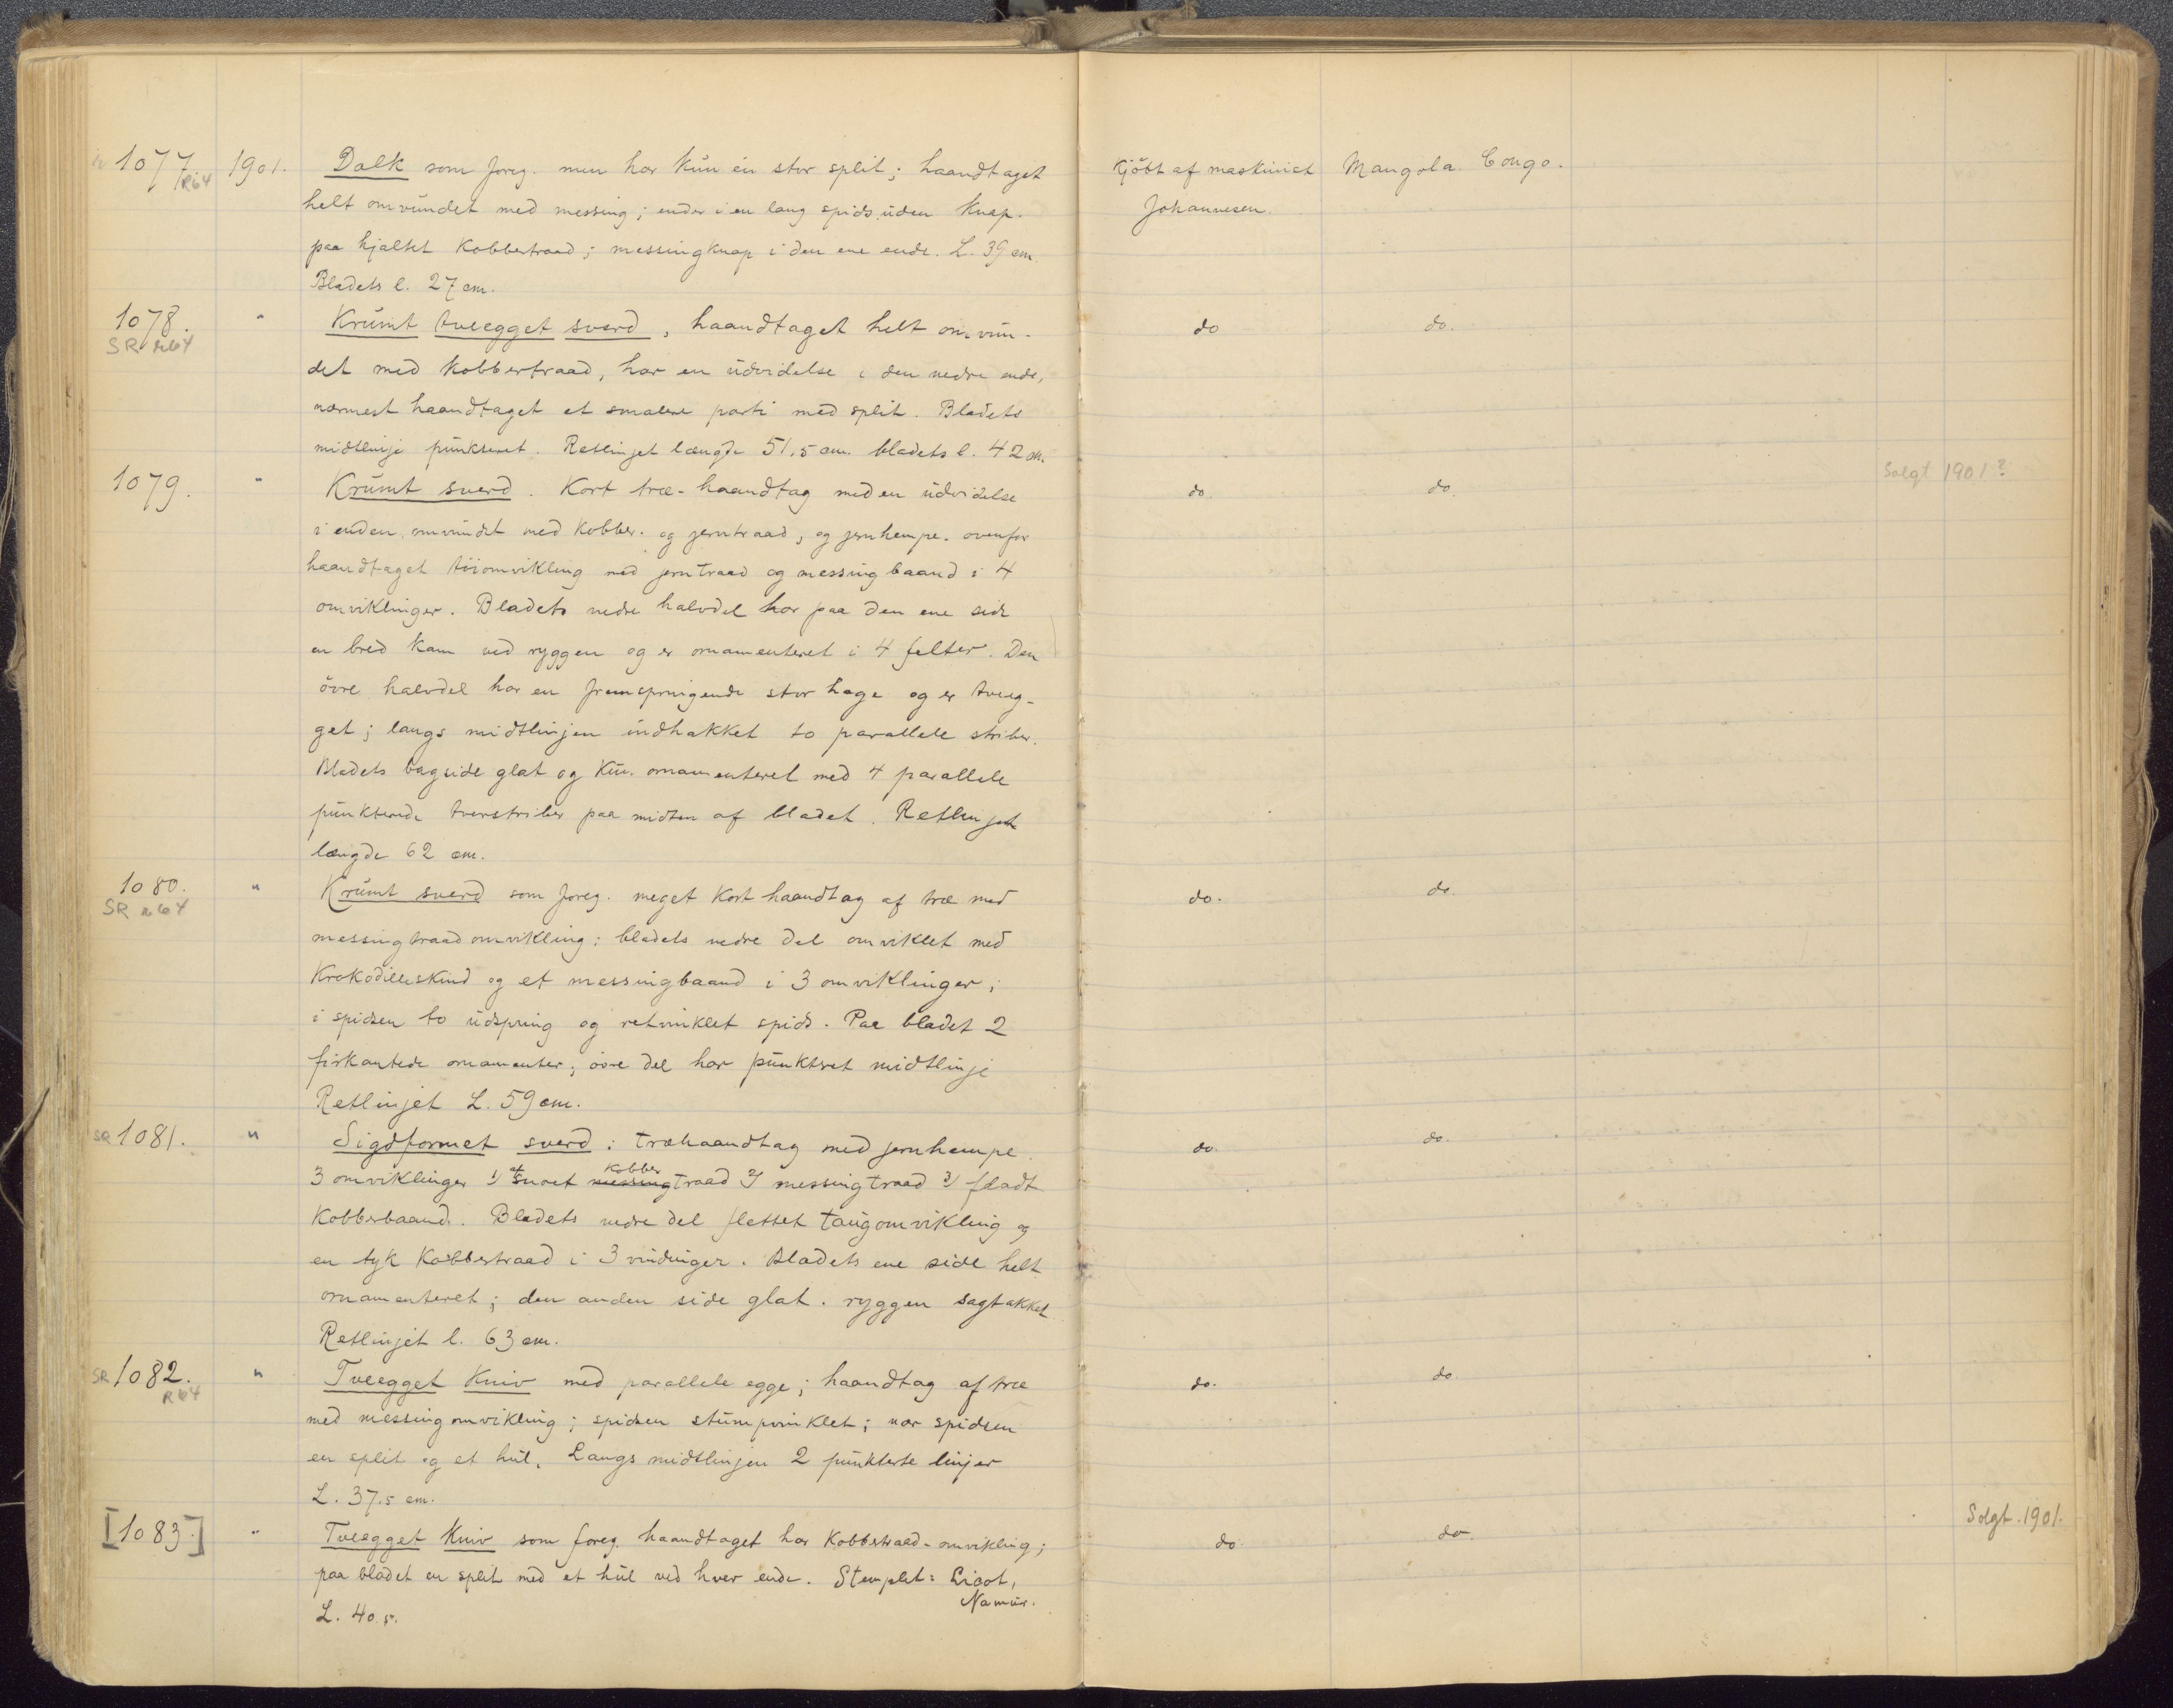 1077. R64 1901. Dolk som foreg. men har kun én stor split; haandtaget Kjöbt af maskinist Mangola. Congo.
helt omvundet med messing; ender i en lang spids uden knap. Johannesen.
paa hjaltet kobbertraad; messingknap i den ene ende. L. 39 cm.
Bladets l. 27 cm.
1078. SR R64 " Krumt tveegget sverd, haandtaget helt omvun- do do.
det med kobbertraad, har en udvidelse i den nedre ende,
nærmest haandtaget et smalere parti med split. Bladets
midtlinje punkteret. Retlinjet længde 51,5 cm. bladets l. 42 cm.
1079. " Krumt sverd. Kort træ-haandtag med en udvidelse do. do. Solgt 1901?
i enden, omvundet med kobber- og jerntraad, og jernhempe. ovenfor
haandtaget töiomvikling med jerntraad og messingbaand i 4
omviklinger. Bladets nedre halvdel har paa den ene side
en bred kam ved ryggen og er ornamenteret i 4 felter. Den
övre halvdel har en fremspringende stor hage og er tveeg-
get; langs midtlinjen indhakket to parallele striber.
Bladets bagside glat og kun ornamenteret med 4 parallele
punkterede tverstriber paa midten af bladet. Retlinjet
længde 62 cm.
1080. SR R64 " Krumt sverd som foreg. meget kort haandtag af træ med do. do.
messingtraadomvikling; bladets nedre del omviklet med
Krokodilleskind og et messingbaand i 3 omviklinger;
i spidsen to udspring og retvinklet spids. Paa bladet 2
firkantede ornamenter; övre del har punktret midtlinje
Retlinjet L. 59 cm.
SR 1081. " Sigdformet sverd; træhaandtag med jernhempe. do. do.
3 omviklinger 1) af snoet messing kobber traad 2) messingtraad 3) fladt
Kobberbaand. Bladets nedre del flettet taugomvikling og
en tyk Kobbertraad i 3 vindinger. Bladets ene side helt
ornamenteret; den anden side glat. ryggen sagtakket
Retlinjet l. 63 cm.
SR 1082. R64 " Tveegget Kniv med parallele egge; haandtag af træ do. do.
med messingomvikling; spidsen stumpvinklet; nær spidsen
en split og et hul. Langs midtlinjen 2 punkterte linjer
L. 37.5 cm.
[1083.] " Tveegget Kniv som foreg. haandtaget har Kobbertraad-omvikling; do do. Solgt. 1901.
paa bladet en split med et hul ved hver ende. Stemplet: Licot,
Namur.
L. 40.5.